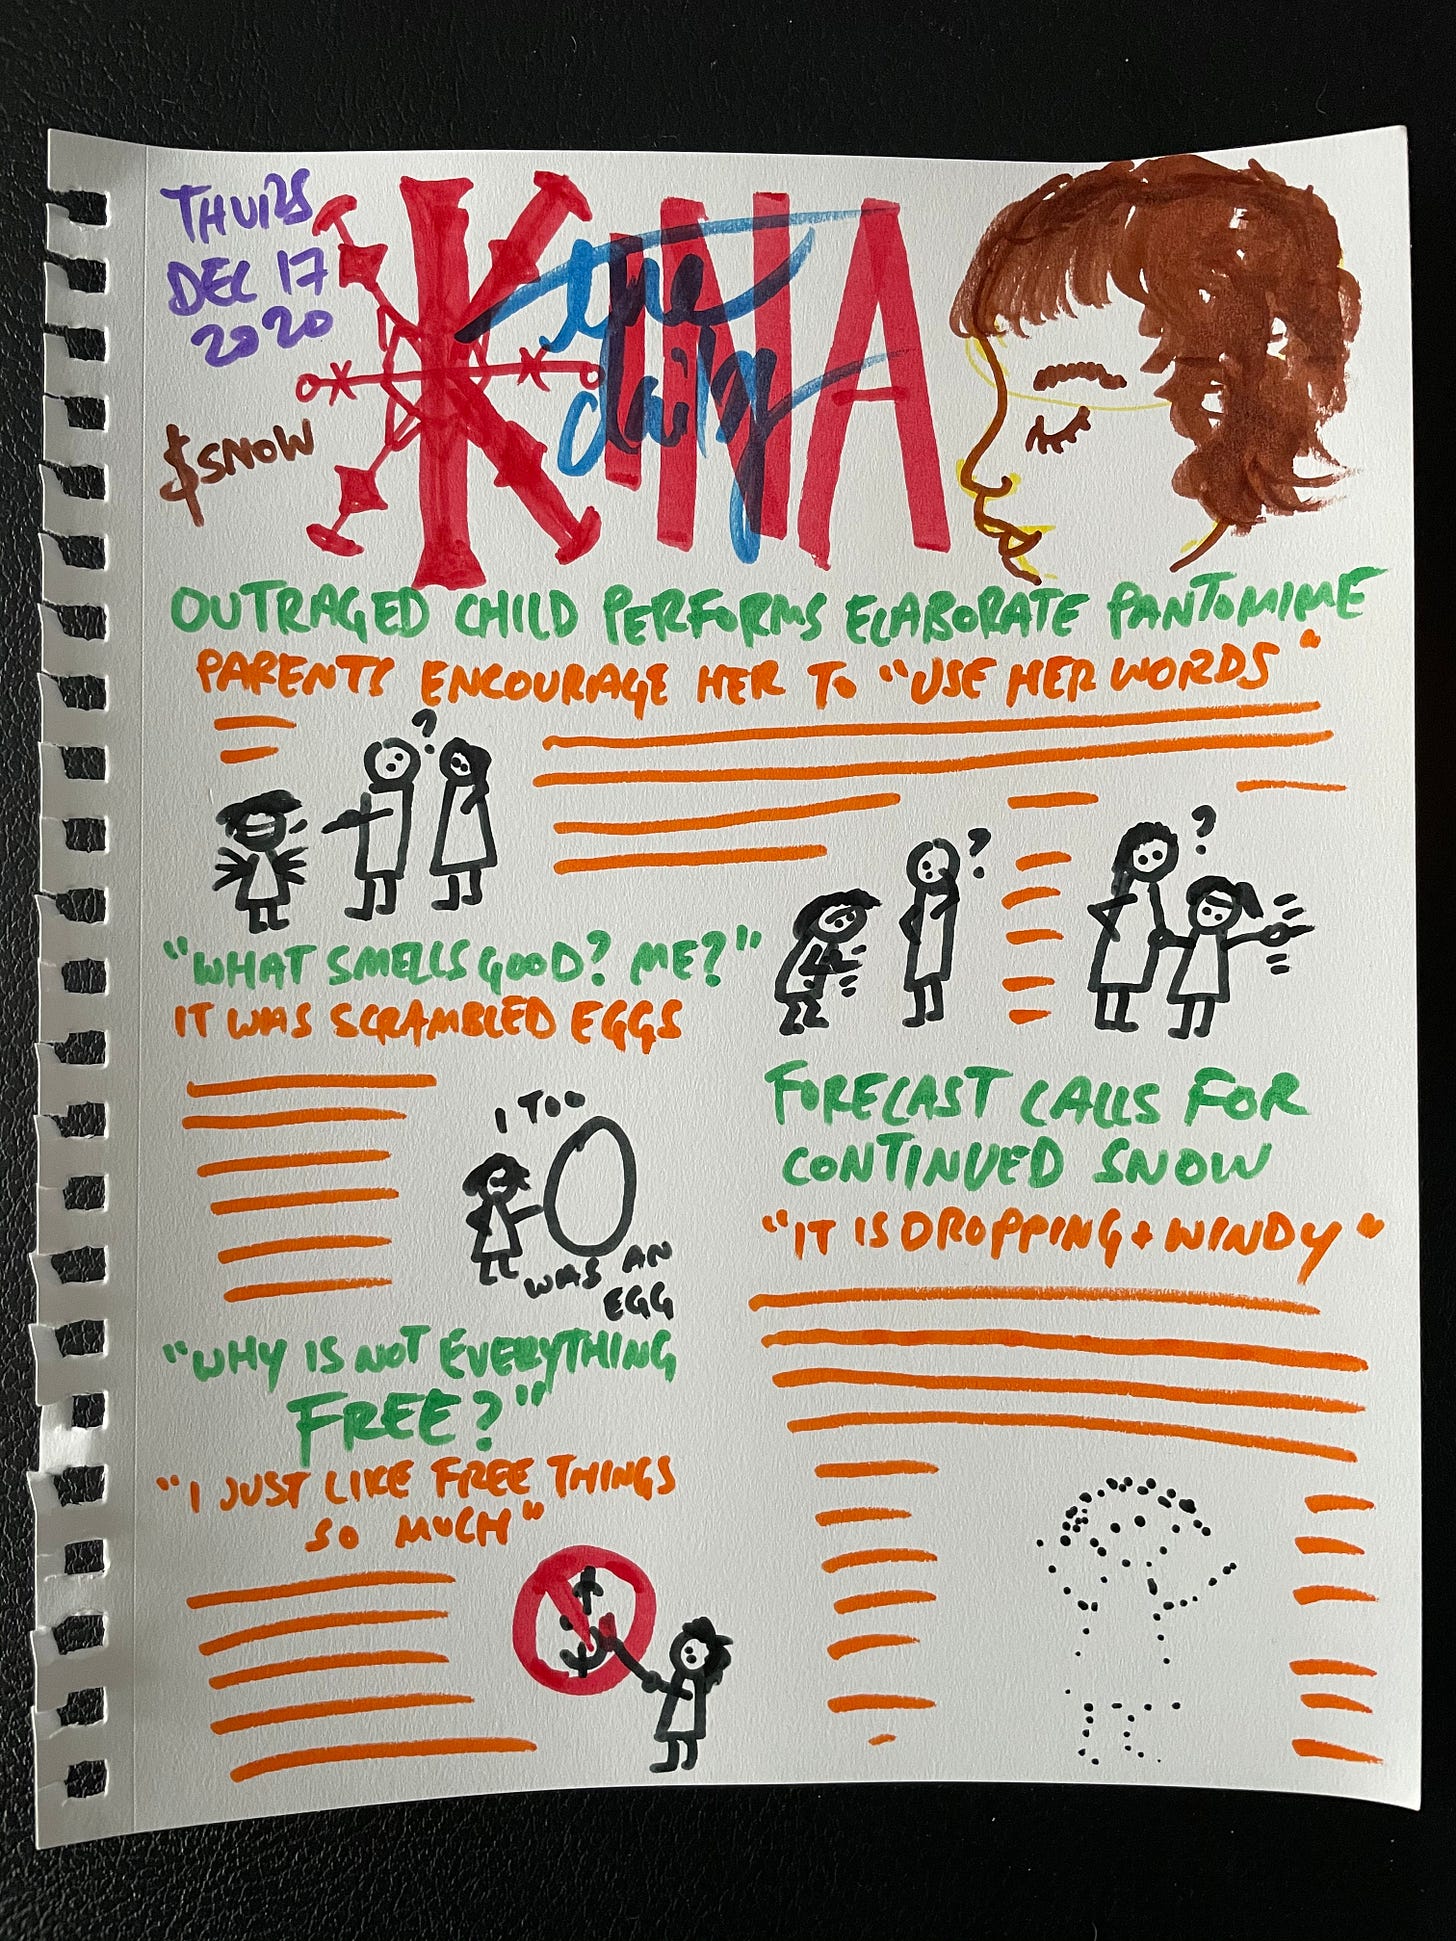 THURS
DEC 17
2020
$SNOW
the daily
KINA
OUTRAGED CHILD PERFORMS ELABORATE PANTOMIME
PARENTS ENCOURAGE HER TO "USE HER WORDS"
?
?
?
"WHAT SMELLS GOOD? ME?"
IT WAS SCRAMBLED EGGS
I TOO
WAS AN
EGG
FORECAST CALLS FOR
CONTINUED SNOW
"IT IS DROPPING + WINDY"
"WHY IS NOT EVERYTHING
FREE?"
"I JUST LIKE FREE THINGS
SO MUCH"
$